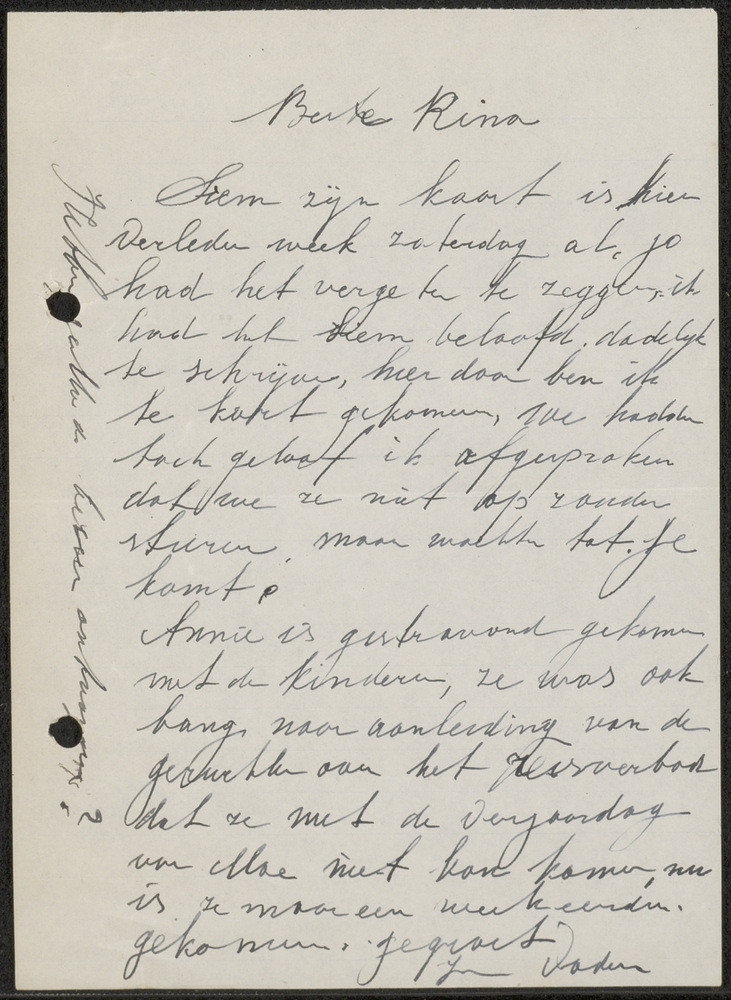 Beste Rina
Siem zijn kaart is hier
verleden week zaterdag al, Jo
had het vergeten te zeggen, ik
had het Siem beloofd. dadelijk
te schrijven, hier door ben ik
te kort gekomen, we hadden
toch geloof ik afgesproken
dat we ze niet op zouden
sturen, maar wachten tot. Je
komt.
Annie is gistravond gekomen
met de kinderen, ze was ook
bang naar aanleiding van de
geruchten over het Reisverbod
dat ze met de Verjaardag
van Moe niet kon komen, nu
is ze maar een week eerder.
gekomen. gegroet
Je Vader
de brieven ontvangen?